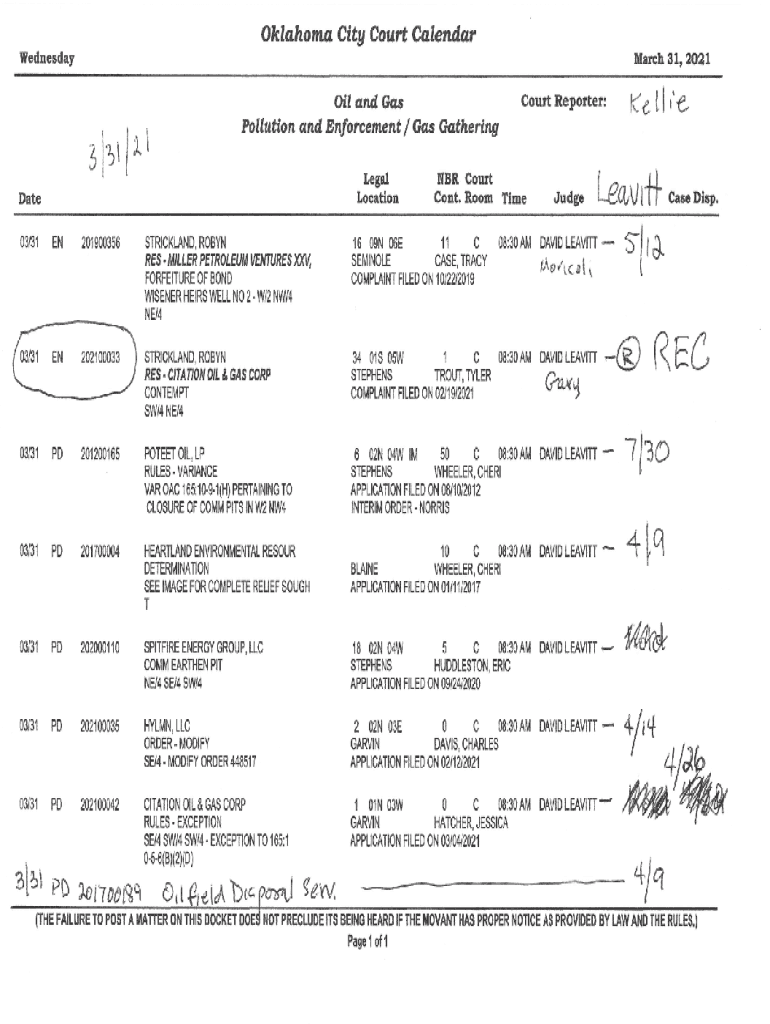 Oklahoma City Court Calendar
Wednesday March 31, 2021
Oil and Gas Court Reporter: Kellie
Pollution and Enforcement / Gas Gathering
3/31/21
Legal NBR Court
Date Location Cont. Room Time Judge Leavitt Case Disp.
03/31 EN 201900356 STRICKLAND, ROBYN 16 09N 06E 11 C 08:30 AM DAVID LEAVITT — 5/12
RES - MILLER PETROLEUM VENTURES XXV, SEMINOLE CASE, TRACY
FORFEITURE OF BOND COMPLAINT FILED ON 10/22/2019
WISENER HEIRS WELL NO 2 - W/2 NW/4
NE/4
03/31 EN 202100033 STRICKLAND, ROBYN 34 01S 05W 1 C 08:30 AM DAVID LEAVITT — R REC
RES - CITATION OIL & GAS CORP STEPHENS TROUT, TYLER Gary
CONTEMPT COMPLAINT FILED ON 02/19/2021
SW/4 NE/4
03/31 PD 201200165 POTEET OIL, LP 6 02N 04W IM 50 C 08:30 AM DAVID LEAVITT — 7/30
RULES - VARIANCE STEPHENS WHEELER, CHERI
VAR OAC 165:10-9-1(H) PERTAINING TO APPLICATION FILED ON 08/10/2012
CLOSURE OF COMM PITS IN W2 NW/4 INTERIM ORDER - NORRIS
03/31 PD 201700004 HEARTLAND ENVIRONMENTAL RESOUR 10 C 08:30 AM DAVID LEAVITT — 4/9
DETERMINATION BLAINE WHEELER, CHERI
SEE IMAGE FOR COMPLETE RELIEF SOUGH APPLICATION FILED ON 01/11/2017
T
03/31 PD 202000110 SPITFIRE ENERGY GROUP, LLC 18 02N 04W 5 C 08:30 AM DAVID LEAVITT —
COMM EARTHEN PIT STEPHENS HUDDLESTON, ERIC
NE/4 SE/4 SW/4 APPLICATION FILED ON 09/24/2020
03/31 PD 202100035 HYLMN, LLC 2 02N 03E 0 C 08:30 AM DAVID LEAVITT — 4/14
ORDER - MODIFY GARVIN DAVIS, CHARLES
SE/4 - MODIFY ORDER 448517 APPLICATION FILED ON 02/12/2021
4/26
03/31 PD 202100042 CITATION OIL & GAS CORP 1 01N 03W 0 C 08:30 AM DAVID LEAVITT —
RULES - EXCEPTION GARVIN HATCHER, JESSICA
SE/4 SW/4 SW/4 - EXCEPTION TO 165:1 APPLICATION FILED ON 03/04/2021
0-5-6(B)(2)(D)
3/31 PD 201700189 Oilfield Disposal Serv. — 4/9
(THE FAILURE TO POST A MATTER ON THIS DOCKET DOES NOT PRECLUDE ITS BEING HEARD IF THE MOVANT HAS PROPER NOTICE AS PROVIDED BY LAW AND THE RULES.)
Page 1 of 1